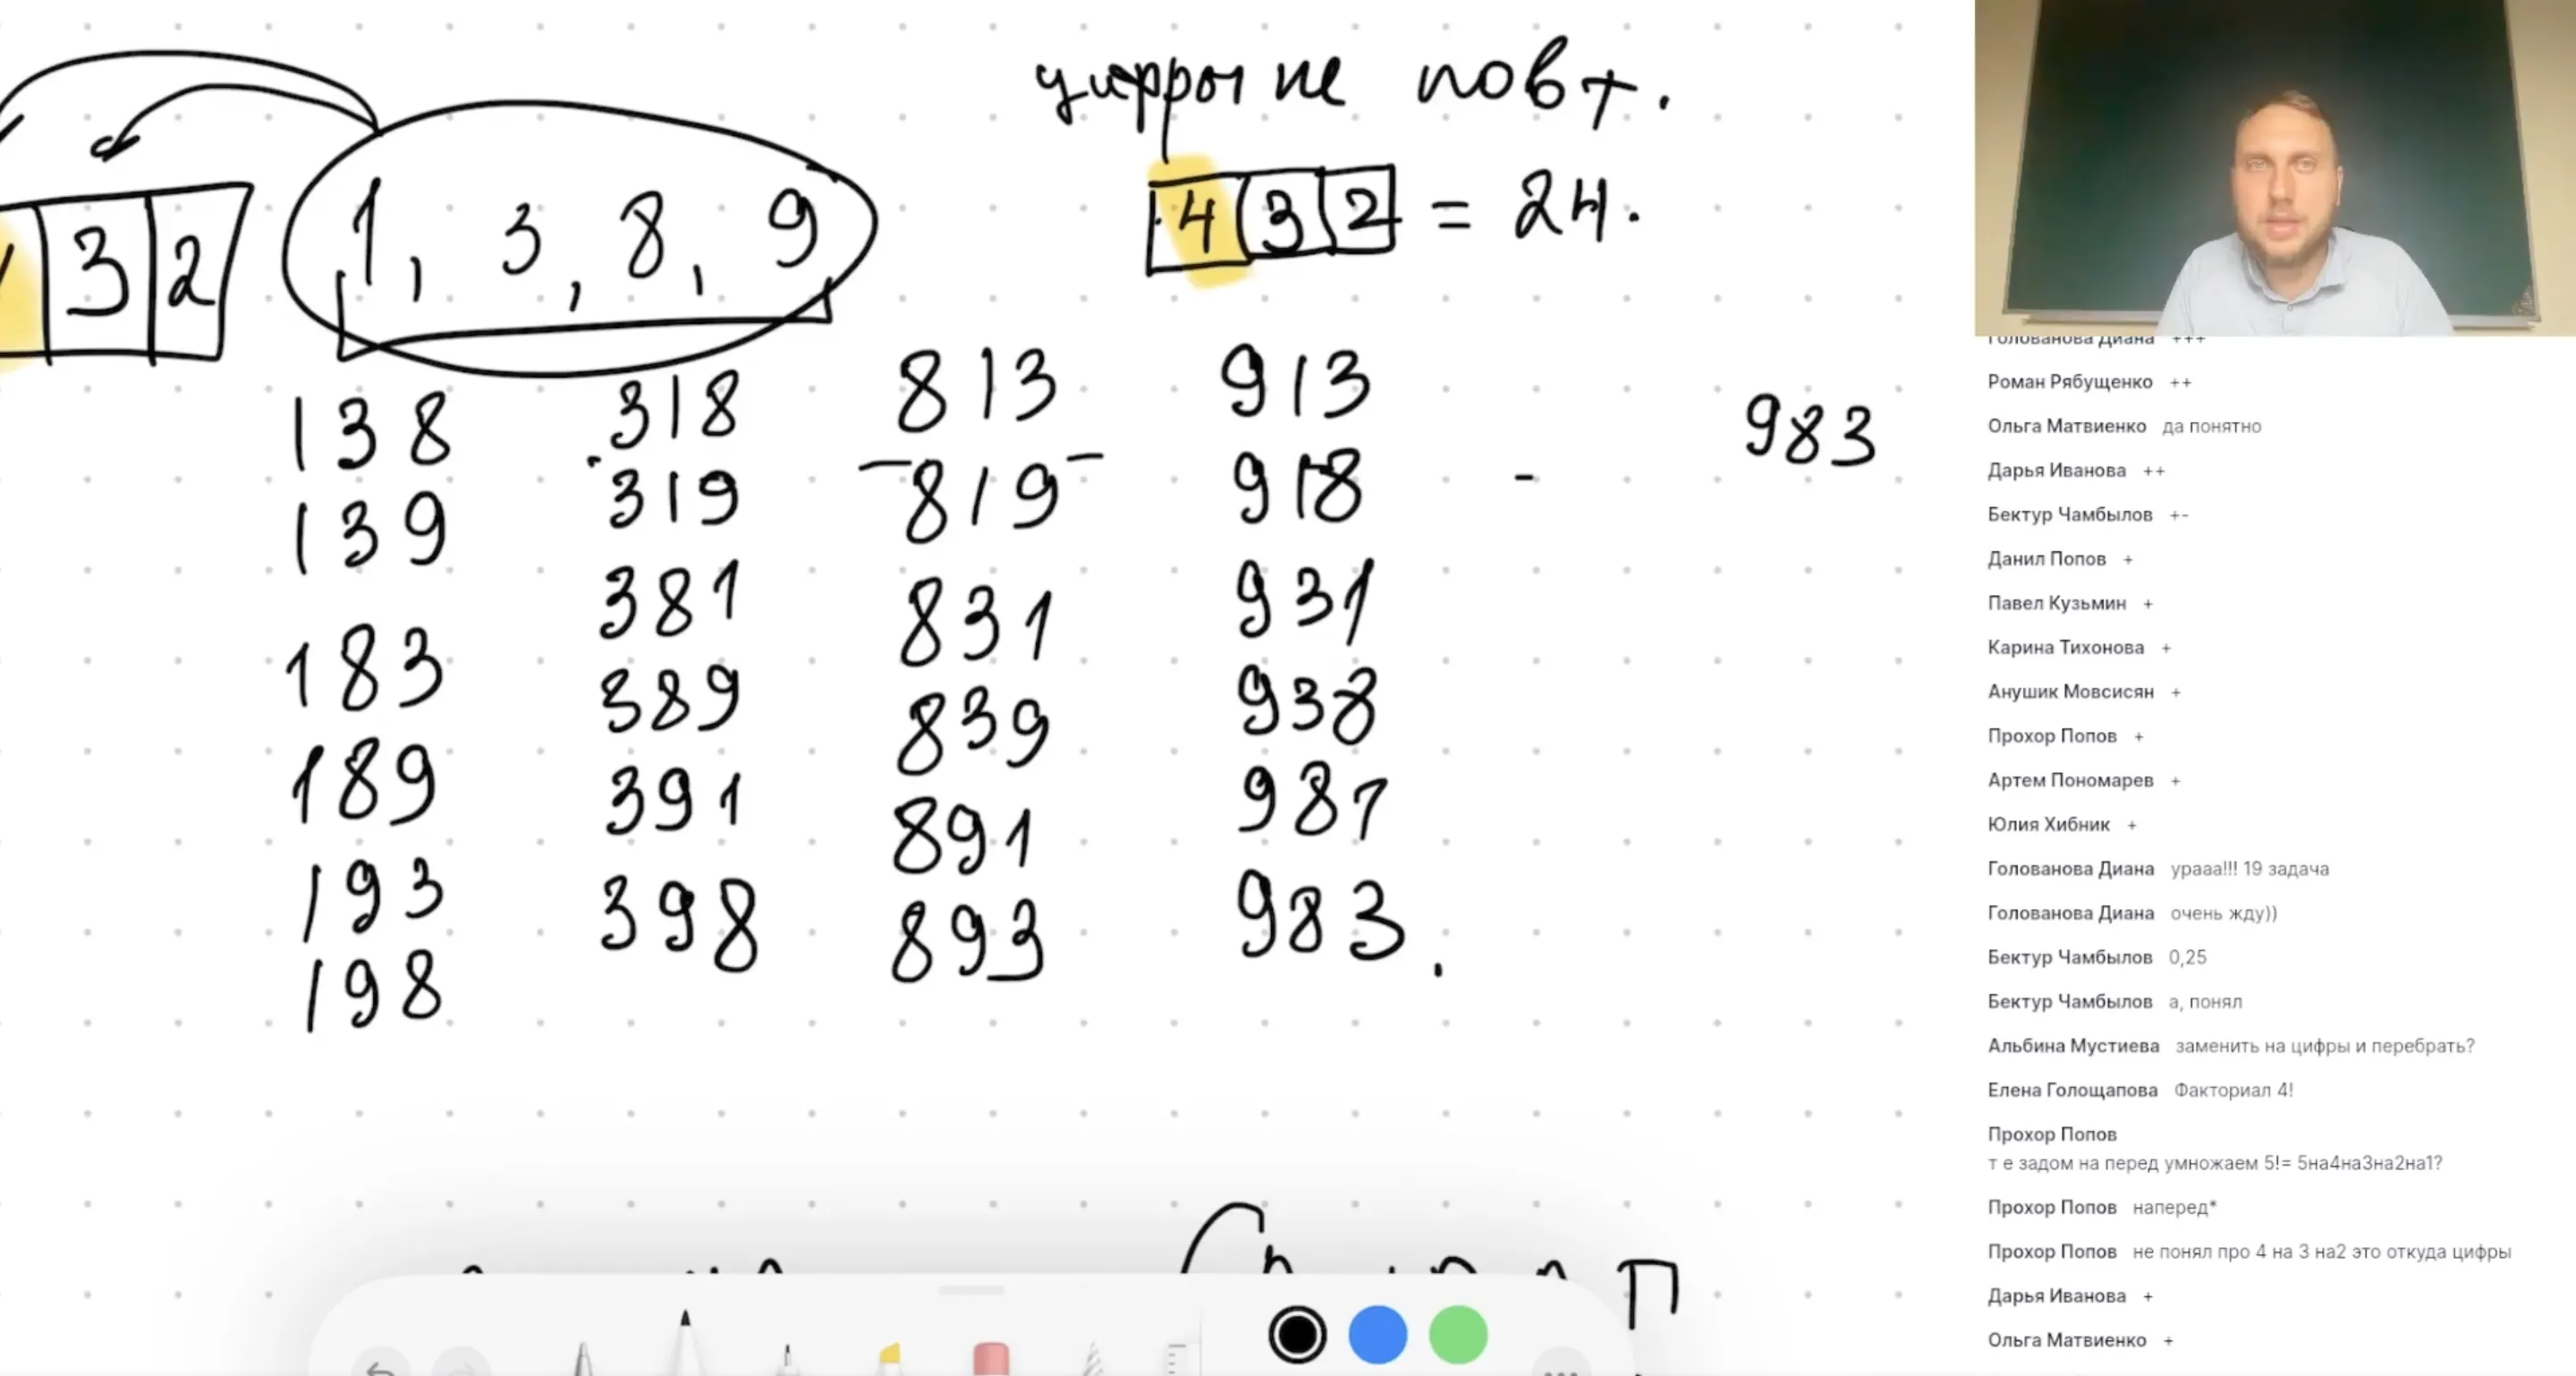 цифры не повт.
4 3 2 = 24.
3 2
1, 3, 8, 9
138 318 813 913 983
139 319 819 918
183 381 831 931
189 389 839 938
193 391 891 981
198 398 893 983.
Голованова Диана +++
Роман Рябущенко ++
Ольга Матвиенко да понятно
Дарья Иванова ++
Бектур Чамбылов +-
Данил Попов +
Павел Кузьмин +
Карина Тихонова +
Анушик Мовсисян +
Прохор Попов +
Артем Пономарев +
Юлия Хибник +
Голованова Диана урааа!!! 19 задача
Голованова Диана очень жду))
Бектур Чамбылов 0,25
Бектур Чамбылов а, понял
Альбина Мустиева заменить на цифры и перебрать?
Елена Голощапова Факториал 4!
Прохор Попов
т е задом на перед умножаем 5!= 5на4на3на2на1?
Прохор Попов наперед*
Прохор Попов не понял про 4 на 3 на2 это откуда цифры
Дарья Иванова +
Ольга Матвиенко +